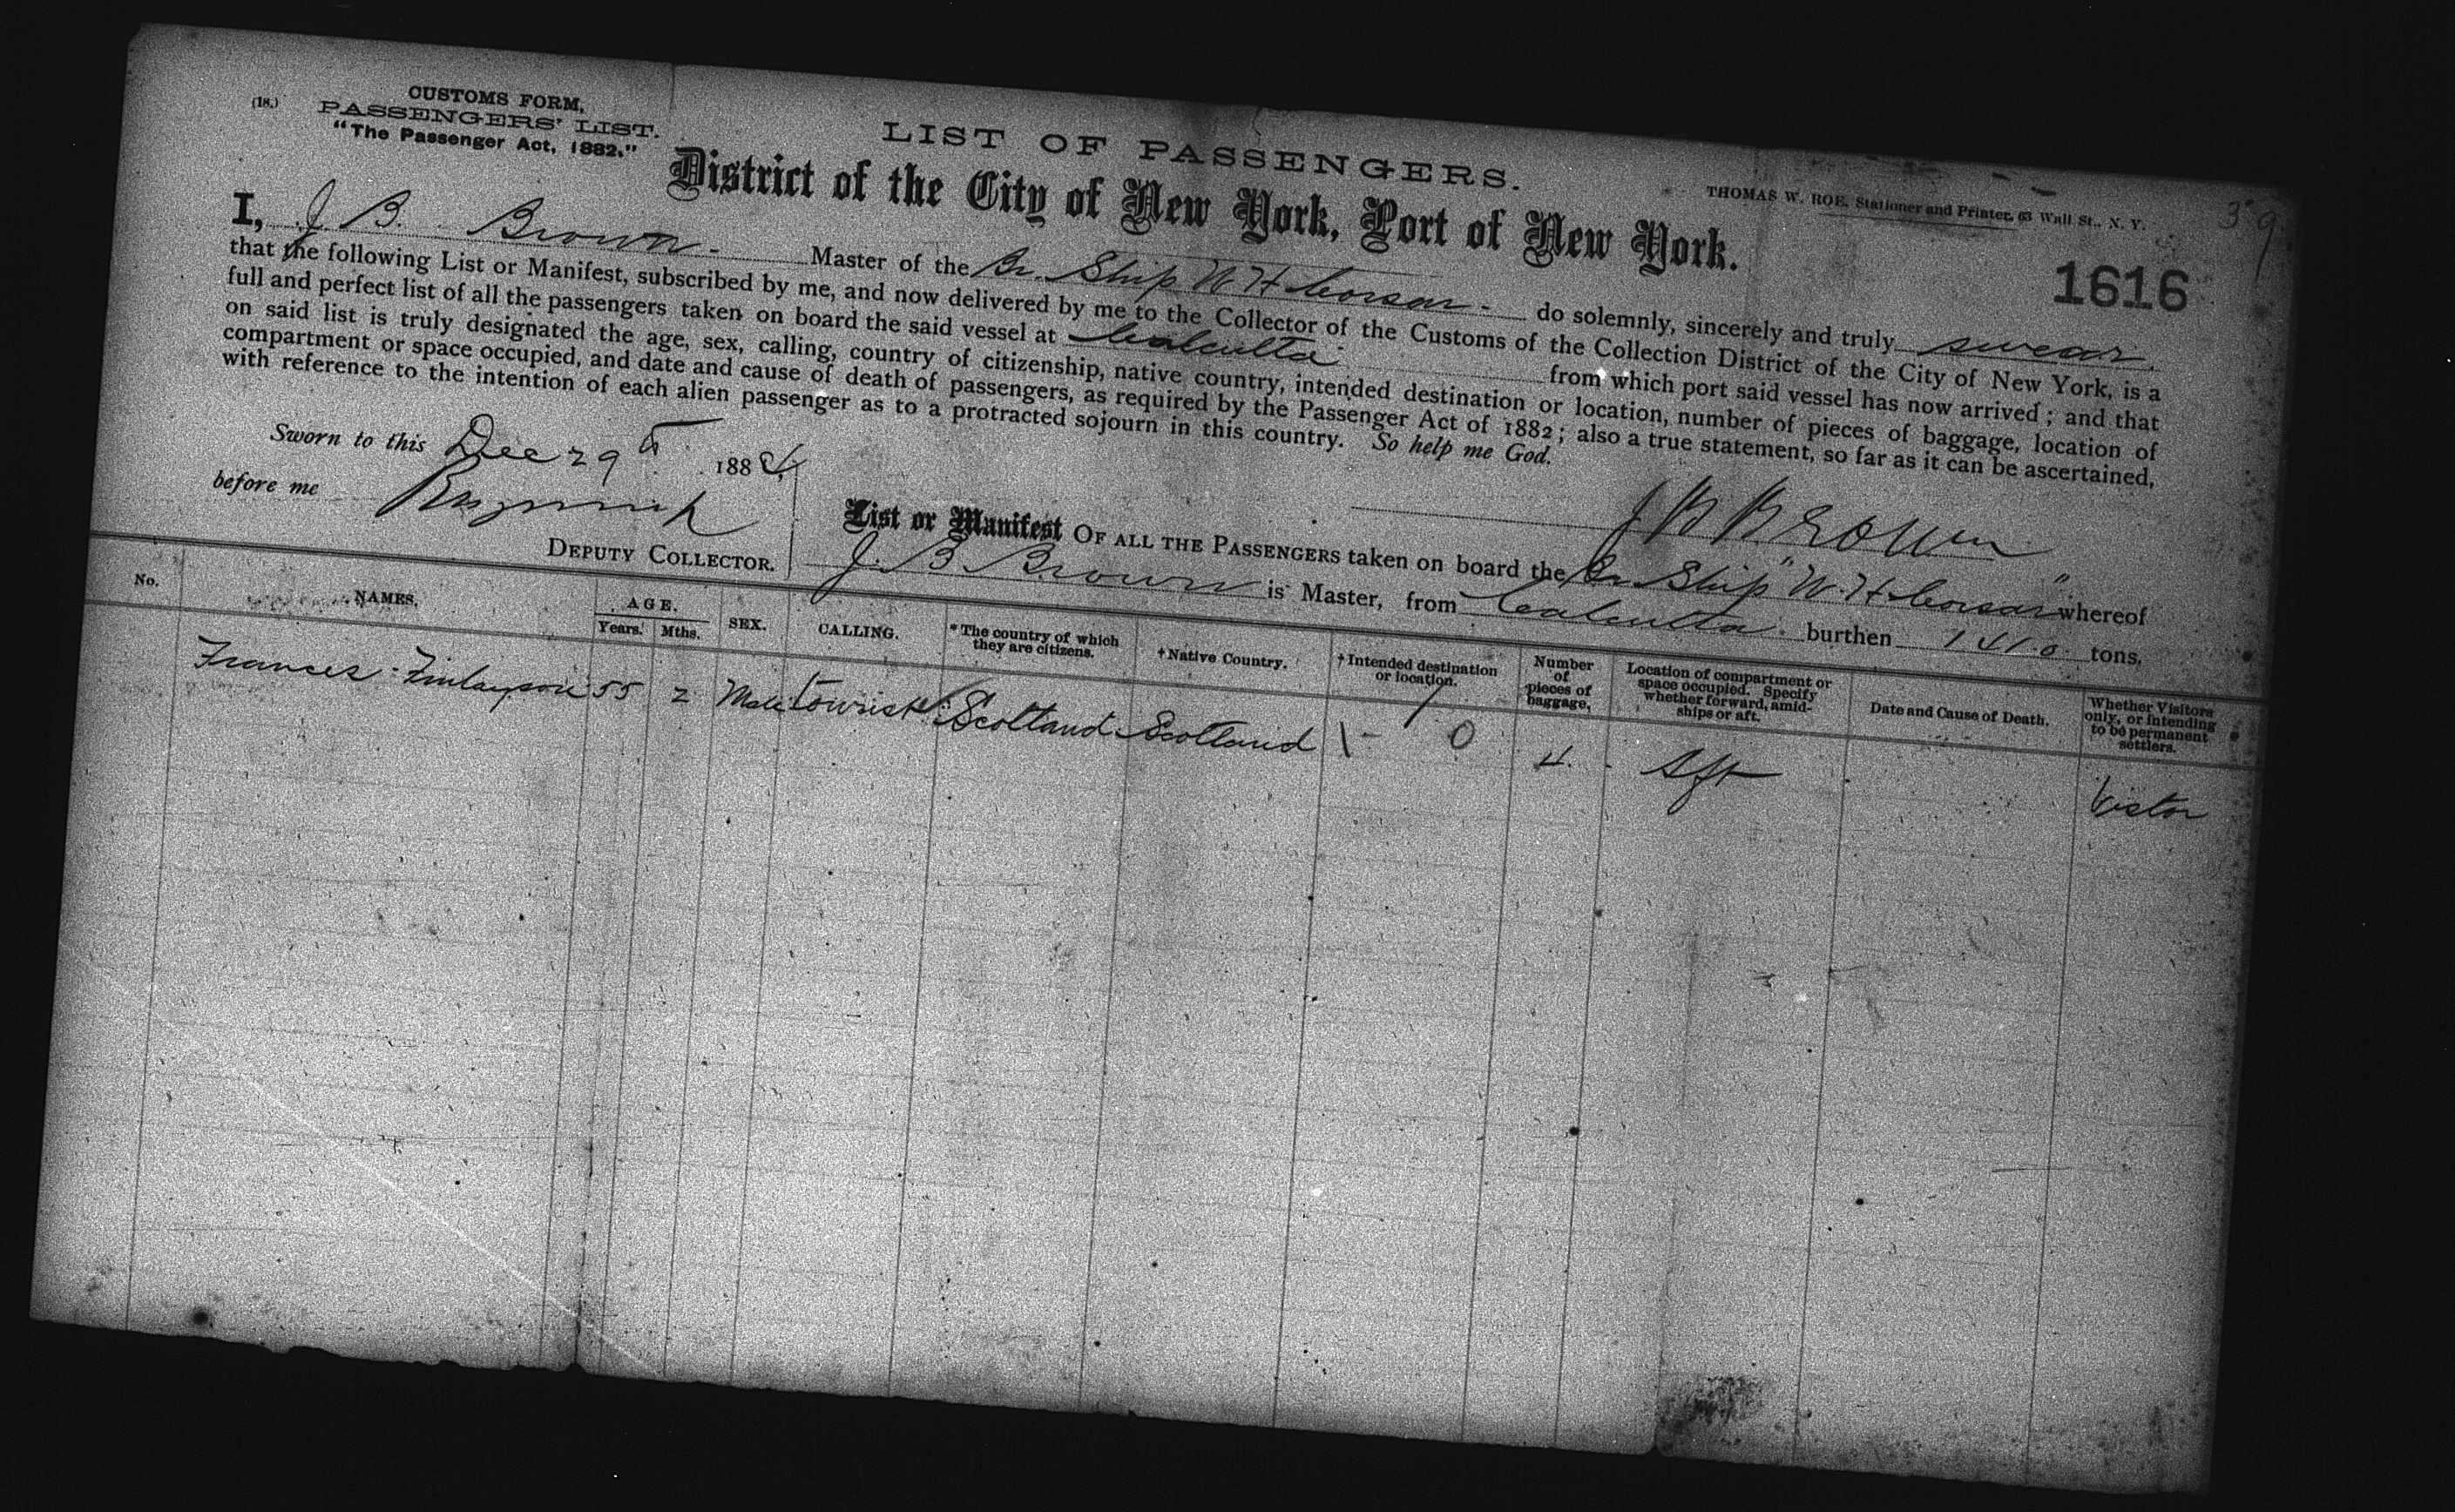 (18.)
CUSTOMS FORM,
PASSENGERS' LIST.
"The Passenger Act, 1882."
LIST OF PASSENGERS.
District of the City of New York, Port of New York.
THOMAS W. ROE, Stationer and Printer, 63 Wall St., N. Y.
39
1616
I, J B. Brown. Master of the Br. Ship W. H. Corsar. do solemnly, sincerely and truly swear,
that the following List or Manifest, subscribed by me, and now delivered by me to the Collector of the Customs of the Collection District of the City of New York, is a
full and perfect list of all the passengers taken on board the said vessel at Calcutta from which port said vessel has now arrived; and that
on said list is truly designated the age, sex, calling, country of citizenship, native country, intended destination or location, number of pieces of baggage, location of
compartment or space occupied, and date and cause of death of passengers, as required by the Passenger Act of 1882; also a true statement, so far as it can be ascertained,
with reference to the intention of each alien passenger as to a protracted sojourn in this country. So help me God.
Sworn to this Dec 29th 1884
before me
DEPUTY COLLECTOR.
J B Brown
List or Manifest OF ALL THE PASSENGERS taken on board the Br Ship "W. H. Corsar" whereof
J. B Brown is Master, from Calcutta. burthen 1410 tons.
No. NAMES. AGE. Years. Mths. SEX. CALLING. *The country of which they are citizens. †Native Country. †Intended destination or location. Number of pieces of baggage. Location of compartment or space occupied. Specify whether forward, amidships or aft. Date and Cause of Death. Whether Visitors only, or intending to be permanent settlers.
Frances Finlayson 55 2 Male tourist Scotland Scotland 4. Aft Vistor